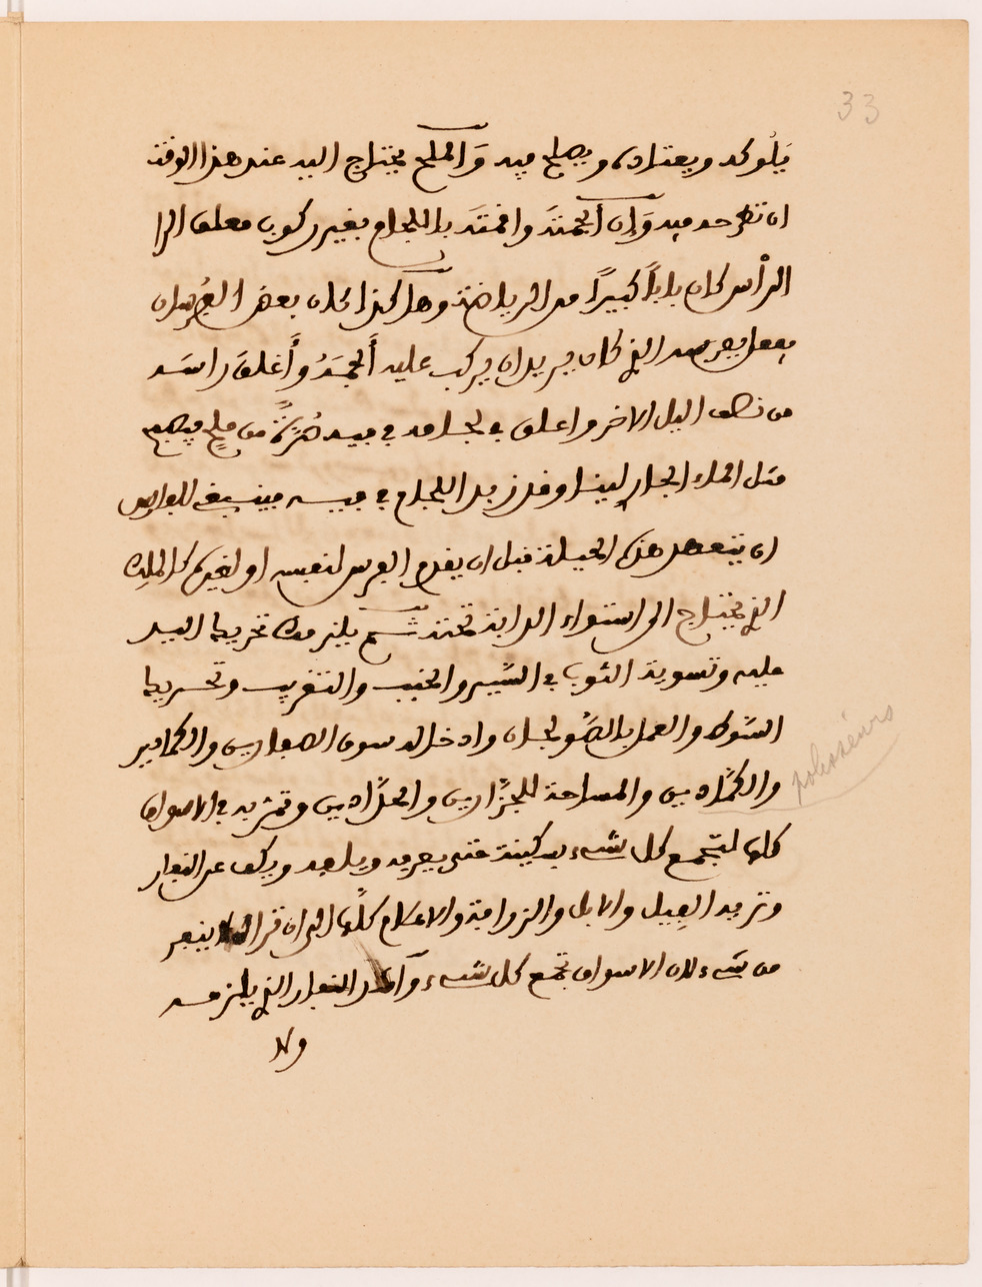 33
يَلُوكه ويعتاده ويصلح فيه وَالملح يحتاج اليه عند هذا الوقت
ان تطرحه فيه وَإن أَلجمته واقمته باللجام بغير ركوب معلق الرا
الرأس كان باباً كبيراً من الرياضة وهكذا كان بعض الفُرسان
يفعل بفرسه الذي كان يريد ان يركب عليه أَلجمَهُ وأَغلقَ راسَه
من نصف اليل الاخر واعلق في لجامه في فيه صُرَّةً من ملحٍ فيصبح
مثل الماء الجار لينا وقد زبد اللجام في فيه فينبغي للرايض
ان يتعهد هذه الحيلة قبل ان يقدم الفرس لنفسه او لغيره كالملك
الذي يحتاج الى استواء الدابة تحته ثم يلزمك تحريك اليد
عليه وتسوية الثوب في السَّير والخبب والتقريب وتحريك
السَّوط والعمل بالصَّولجان وادخاله سوق الصفارين والكمادير
والكمَّادين والمساحة للجزَّارين والحدَّادين وتمرّ به في الاسواق
كلها لتجمع كل شيء بسكينة حتى يعرفه ويالفه ويكف عن النفار
وتريه الفيل والابل والزرافة والاعلام كلَّها التي ان قرا ينفر
من شيء لان الاسواق تجمع كل شيء وآكد النفار الذي يلزمه
ولا
polisseurs